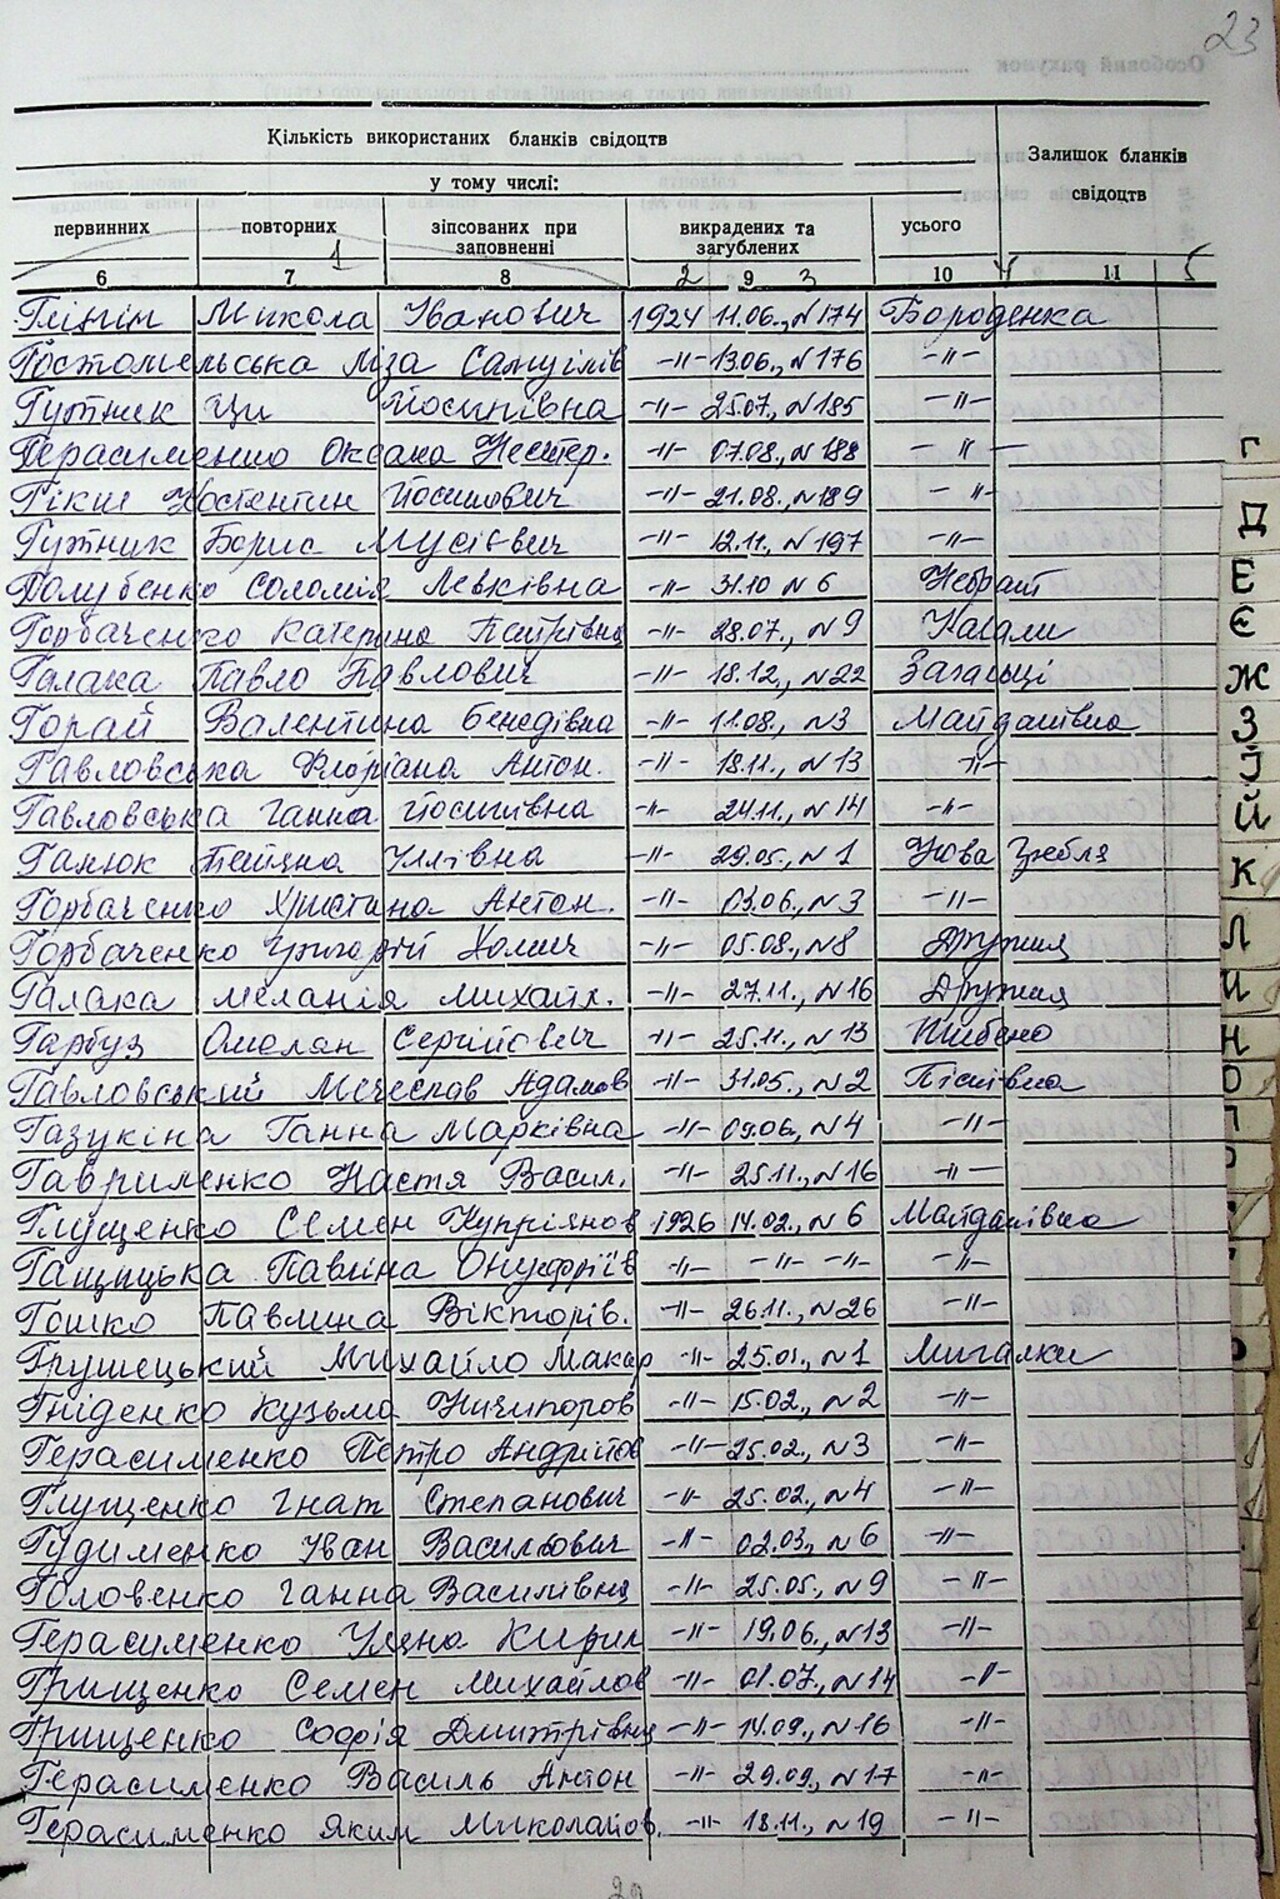 23
Кількість використаних бланків свідоцтв
Залишок бланків свідоцтв
у тому числі:
первинних повторних зіпсованих при заповненні викрадених та загублених усього
1 2 3 4 5
6 7 8 9 10 11
Глінін Микола Іванович 1924 11.06., N174 Бородянка
Гостомельська Ліза Самуілів -"- 13.06., N176 -"-
Гутник Йосипівна -"- 25.07., N185 -"-
Герасименко Оксана Нестер. -"- 07.08., N188 -"-
Гікш Костянтин Йосипович -"- 21.08., N189 -"-
Гутник Борис Мусієвич -"- 12.11., N197 -"-
Голубенко Соломія Левківна -"- 31.10 N6 Небрат
Горбаченко Катерина -"- 28.07., N9
Галака Павло Павлович -"- 18.12., N22 Загальці
Горай Валентина Бенедівна -"- 11.08., N3 Майданівка
Гавловська Флоріана Антон. -"- 18.11., N13 -"-
Гавловська Ганна Йосипівна -"- 24.11., N14 -"-
Галюк Тетяна Іллівна -"- 29.05., N1 Нова Гребля
Горбаченко Христина Антон. -"- 03.06., N3 -"-
Горбаченко Григорій Хомич -"- 05.08., N8 Дружня
Галака Меланія Михайл. -"- 27.11., N16 Дружня
Гарбуз Омелян Сергійович -"- 25.11., N13 Шибено
Гавловський Мечеслав Адамов -"- 31.05., N2 Пісківка
Газукіна Ганна Марківна -"- 09.06., N4 -"-
Гавриленко Настя Васил. -"- 25.11., N16 -"-
Глущенко Семен Купріянов 1926 14.02., N6 Майданівка
Гащицька Павліна Онуфріїв -"- -"- -"- -"-
Гошко Павлина Вікторів. -"- 26.11., N26 -"-
Грушецький Михайло Макар -"- 25.01., N1 Мигалки
Гніденко Кузьма Ничипоров -"- 15.02., N2 -"-
Герасименко Петро Андрійов -"- 25.02., N3 -"-
Глущенко Гнат Степанович -"- 25.02., N4 -"-
Гудименко Іван Васильович -"- 02.03., N6 -"-
Головенко Ганна Василівна -"- 25.05., N9 -"-
Герасименко Уляна Кирил -"- 19.06., N13 -"-
Грищенко Семен Михайлов -"- 01.07., N14 -"-
Грищенко Софія Дмитрівна -"- 14.09., N16 -"-
Герасименко Василь Антон -"- 29.09., N17 -"-
Герасименко Яким Миколайов. -"- 18.11., N19 -"-
Г
Д
Е
Є
Ж
З
І
Й
К
Л
Н
О